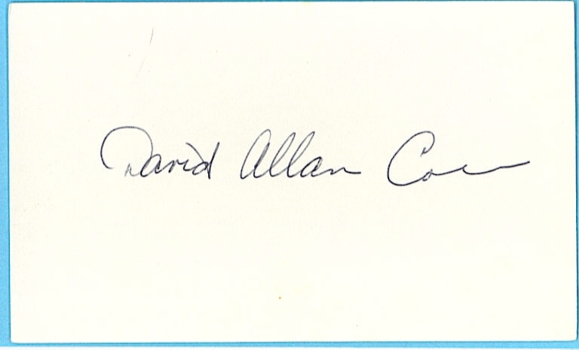 David Allan Coe